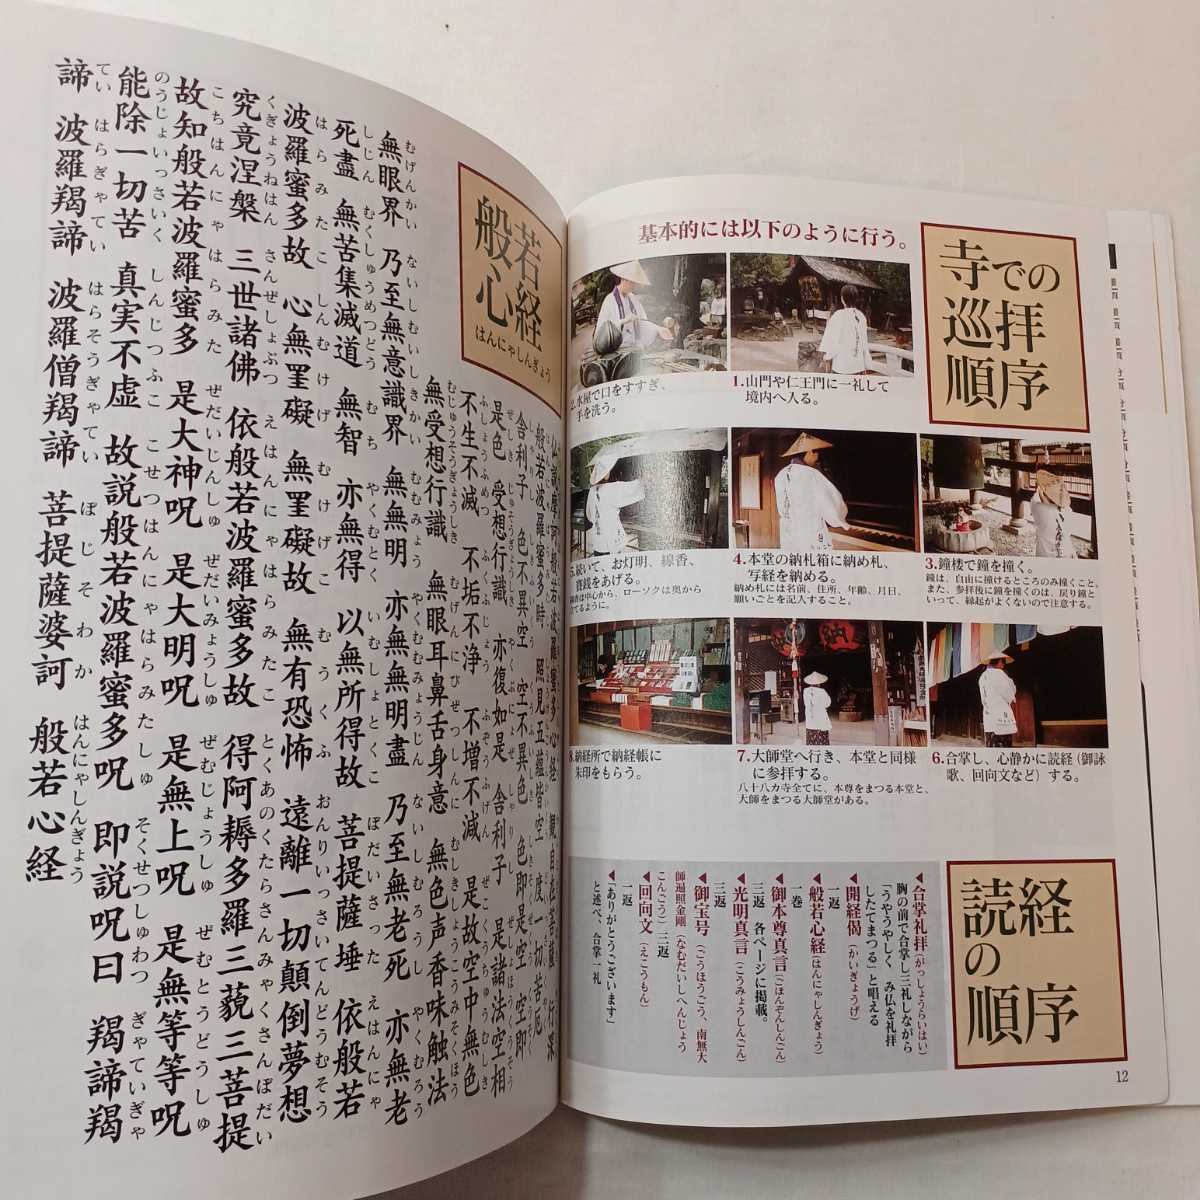 寺での
巡拝
順序
基本的には以下のように行う。
1.山門や仁王門に一礼して
境内へ入る。
2.水屋で口をすすぎ、
手を洗う。
3.鐘楼で鐘を撞く。
鐘は、自由に撞けるところのみ撞くこと。
また、参拝後に鐘を撞くのは、戻り鐘と
いって、縁起がよくないので注意する。
4.本堂の納札箱に納め札、
写経を納める。
納め札には名前、住所、年齢、月日、
願いごとを記入すること。
5.続いて、お灯明、線香、
賽銭をあげる。
線香は中心から、ローソクは奥から
立てるように。
6.合掌し、心静かに読経（御詠
歌、回向文など）する。
7.大師堂へ行き、本堂と同様
に参拝する。
八十八カ寺全てに、本尊をまつる本堂と、
大師をまつる大師堂がある。
8.納経所で納経帳に
朱印をもらう。
読経
の
順序
合掌礼拝（がっしょうらいはい）
胸の前で合掌し三礼しながら
「うやうやしく み仏を礼拝
したてまつる」と唱える
開経偈（かいぎょうげ）
一返
般若心経（はんにゃしんぎょう）
一巻
御本尊真言（ごほんぞんしんごん）
三返 各ページに掲載。
光明真言（こうみょうしんごん）
三返
御宝号（ごほうごう、南無大
師遍照金剛（なむだいしへんじょう
こんごう）三返
回向文（えこうもん）
一返
「ありがとうございます」
と述べ、合掌一礼
12
般若
心経
はんにゃしんぎょう
仏説摩訶般若波羅蜜多心経 観自在菩薩 行深
般若波羅蜜多時 照見五蘊皆空 度一切苦厄
舎利子 色不異空 空不異色 色即是空 空即
是色 受想行識 亦復如是 舎利子 是諸法空相
不生不滅 不垢不浄 不増不減 是故空中無色
無受想行識 無眼耳鼻舌身意 無色声香味触法
無眼界 乃至無意識界 無無明 亦無無明盡 乃至無老死 亦無老
死盡 無苦集滅道 無智 亦無得 以無所得故 菩提薩埵 依般若
波羅蜜多故 心無罣礙 無罣礙故 無有恐怖 遠離一切顛倒夢想
究竟涅槃 三世諸佛 依般若波羅蜜多故 得阿耨多羅三藐三菩提
故知般若波羅蜜多 是大神呪 是大明呪 是無上呪 是無等等呪
能除一切苦 真実不虚 故説般若波羅蜜多呪 即説呪曰 羯諦羯
諦 波羅羯諦 波羅僧羯諦 菩提薩婆訶 般若心経